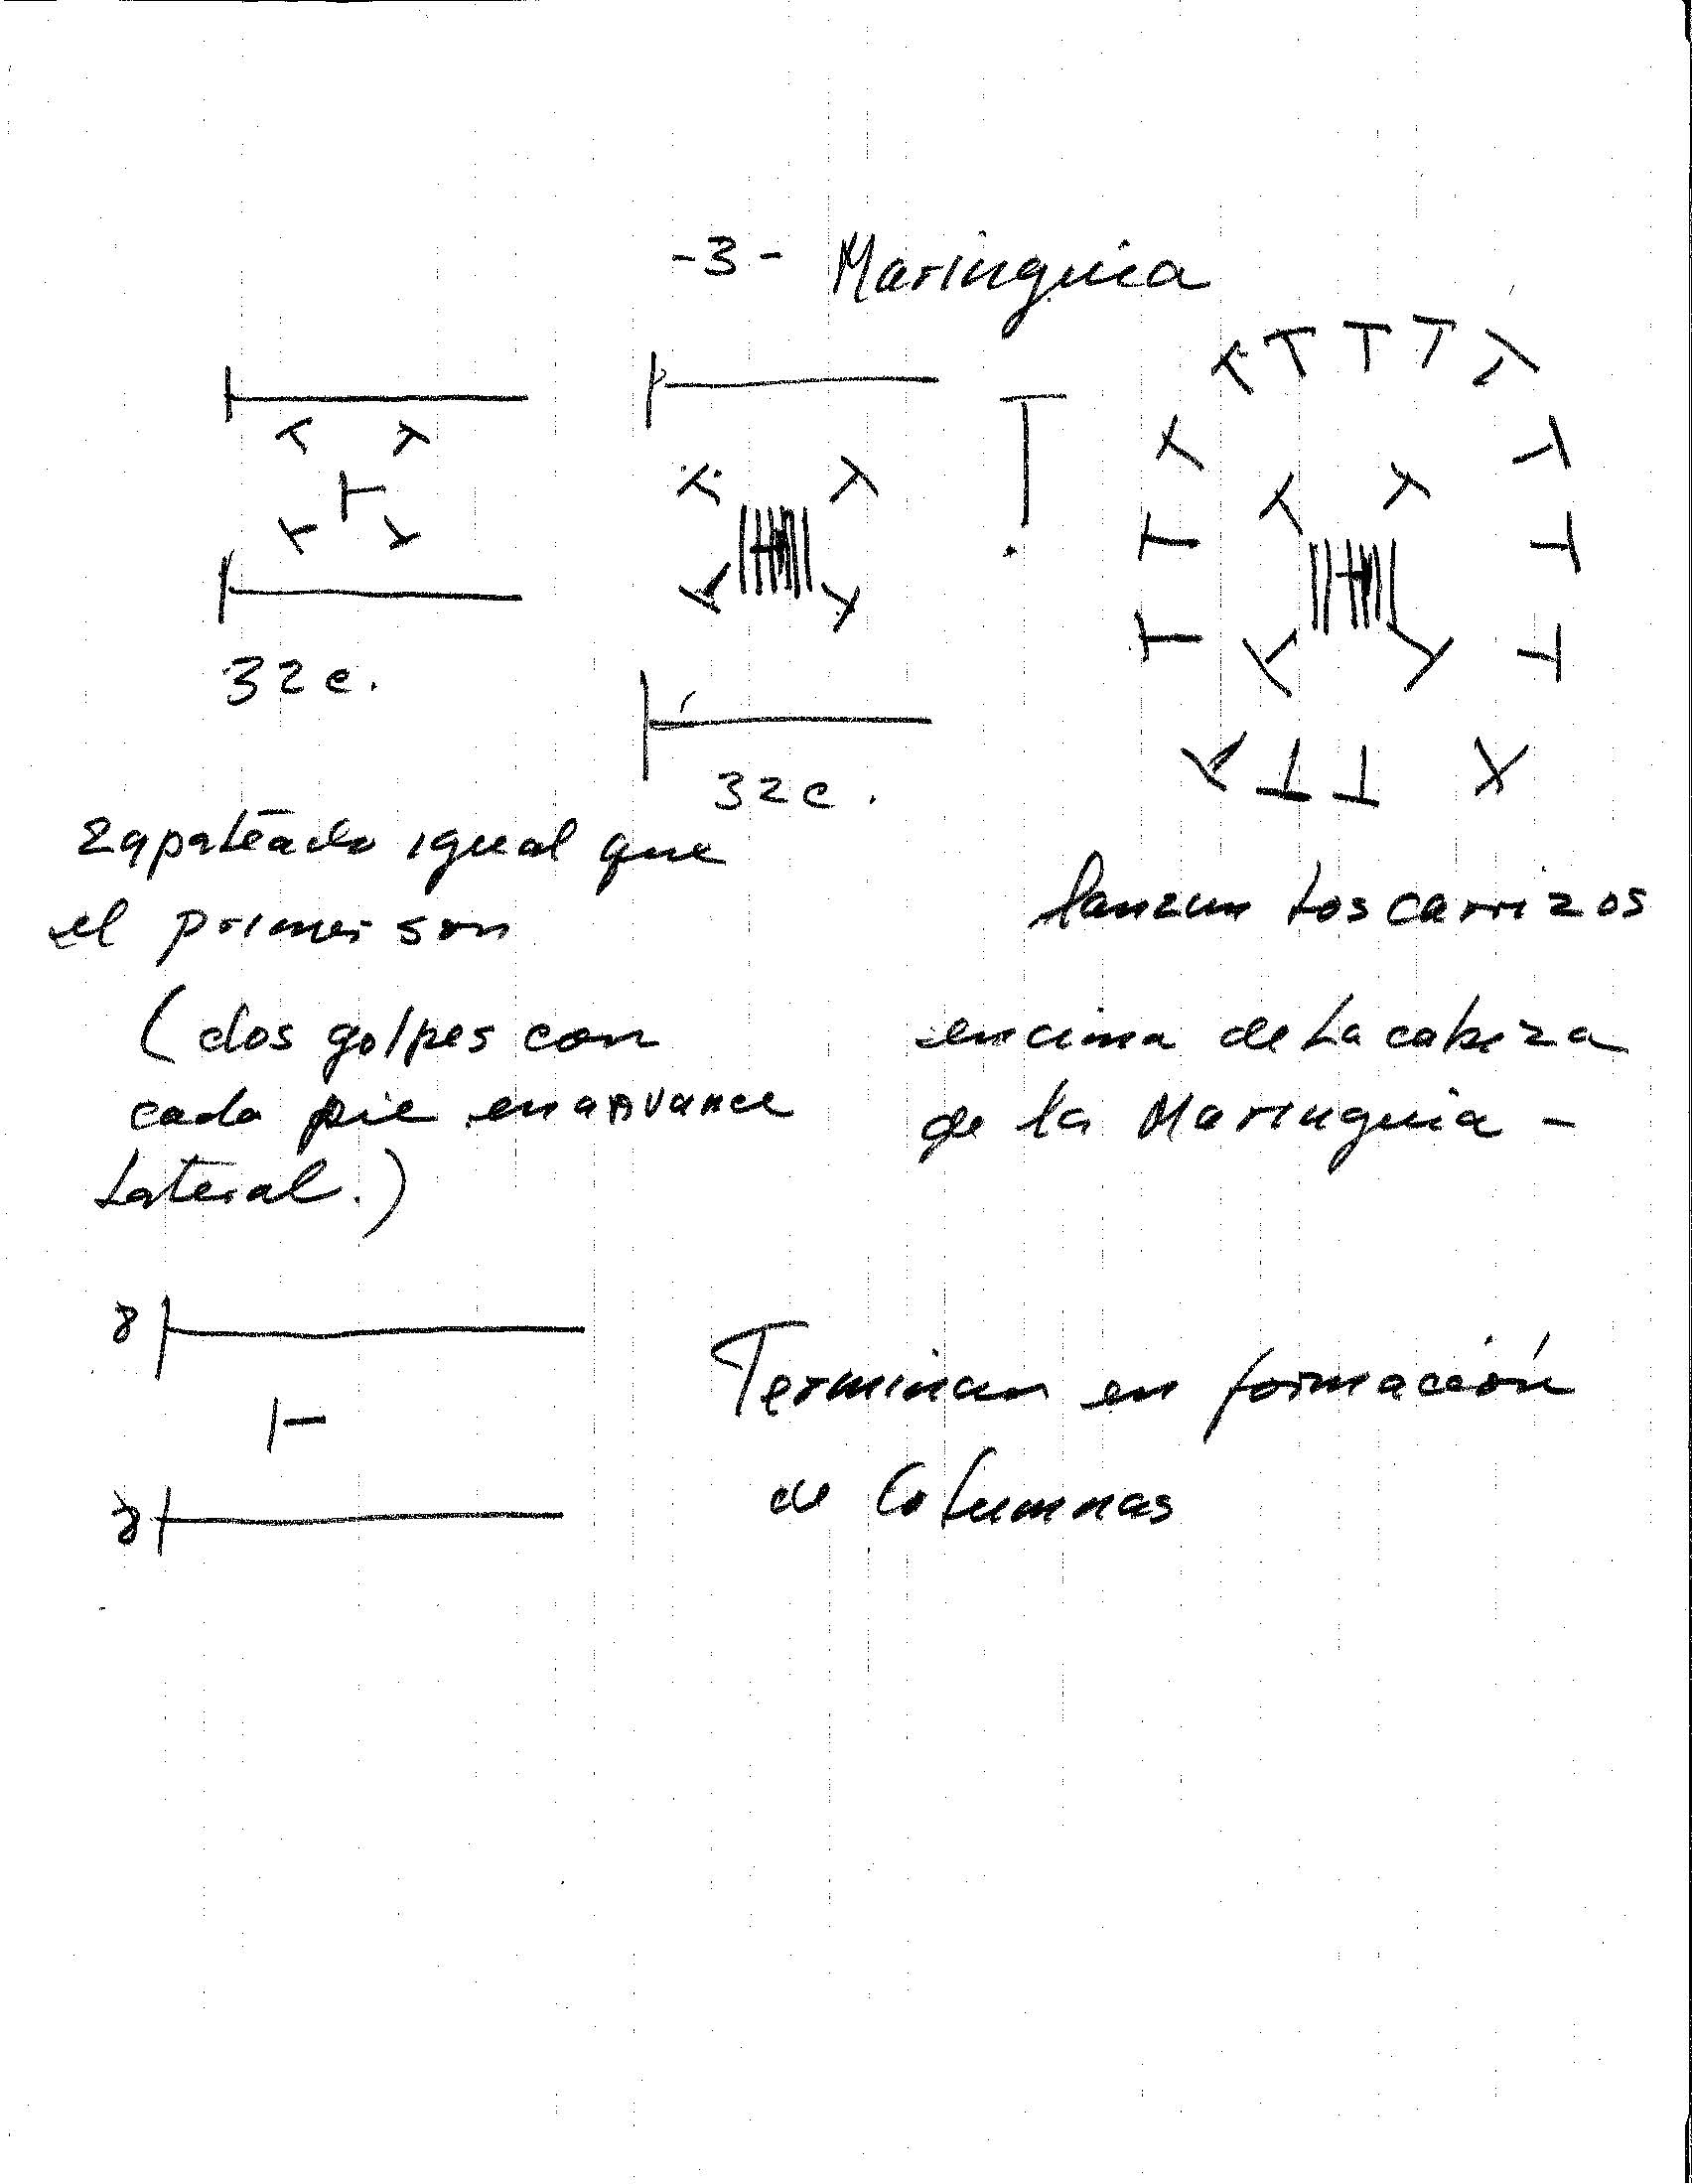 -3- Maringuia
32c.
32c.
Zapateado igual que
el primer son
(dos golpes con
cada pie en avance
Lateral.)
lanzan los carrizos
encima de la cabeza
de la Maringuia -
8
8
Terminan en formación
de Columnas